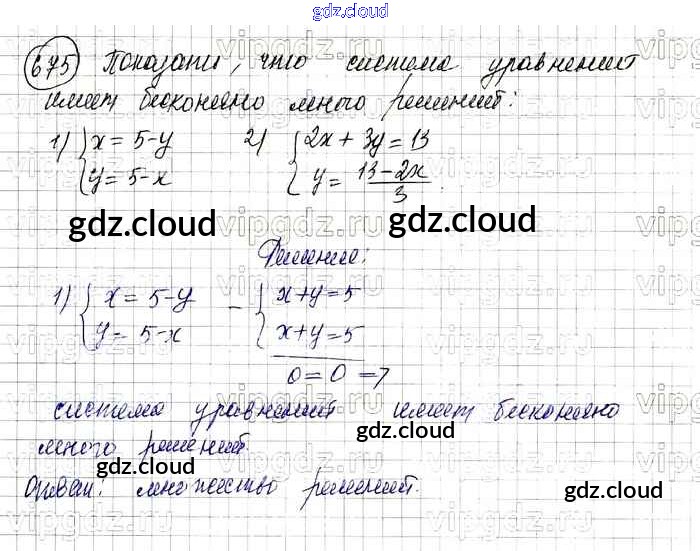 gdz.cloud
675 Показати, что система уравнений
имеет бесконечно много решений:
1) { x = 5-y 2) { 2x + 3y = 13
y = 5-x y = 13-2x / 3
gdz.cloud gdz.cloud
Решение:
1) { x = 5-y - { x+y=5
y = 5-x x+y=5
0=0 =>
система уравнений имеет бесконечно
много решений.
gdz.cloud gdz.cloud
Ответ: множество решений.
gdz.cloud